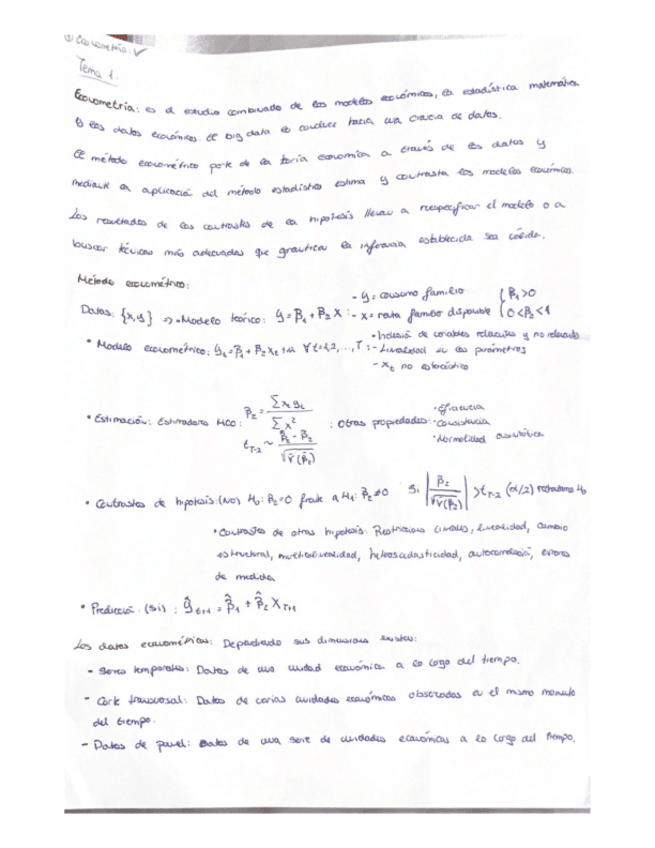 ① Econometría: ✓
Tema 1.
Econometría: es el estudio combinado de los modelos económicos, la estadística matemática
y los datos económicos. El big data es conducir hacia una ciencia de datos.
El método econométrico parte de la teoría economía a través de los datos y
mediante la aplicación del método estadístico estima y contrasta los modelos económicos.
Los resultados de los contrastes de la hipótesis llevan a reespecificar el modelo o a
buscar técnicas más adecuadas que la inferencia establecida sea válida.
Método econométrico:
- y = consumo familio { β₁>0
Datos: {x,y} => • Modelo teórico: y = β₁ + β₂ X : - x = renta disponible { 0<β₂<1
• Modelo econométrico: yₜ = β₁ + β₂ Xₜ + u ∀ t=1,2,...,T : - Inclusión de variables relevantes y no
- Linealidad en los parámetros
- xₜ no estocástico
• Estimación: Estimadores MCO: β̂₂ = Σ xₜ yₜ / Σ x² : Otras propiedades: • Eficiencia
• Consistencia
• Normalidad asintótica
t_T-2 ~ β̂₂ - β₂ / √V̂(β̂₂)
• Contrastes de hipótesis: (No) H₀: β₂=0 frente a H₁: β₂≠0 Si | β̂₂ / √V̂(β̂₂) | > t_T-2 (α/2) H₀
• Contrastes de otras hipótesis: Restricciones lineales, linealidad, cambio
estructural, multicolinealidad, heteroscedasticidad, autocorrelación, errores
de medida
• Predicción: (Si) : ŷₜ₊₁ = β̂₁ + β̂₂ X_T+1
Los datos econométricos: Dependiendo sus dimensiones existen:
- Series temporales: Datos de una unidad económica a lo largo del tiempo.
- Corte transversal: Datos de varias unidades económicas observadas en el mismo momento
del tiempo.
- Datos de panel: Datos de una serie de unidades económicas a lo largo del tiempo.